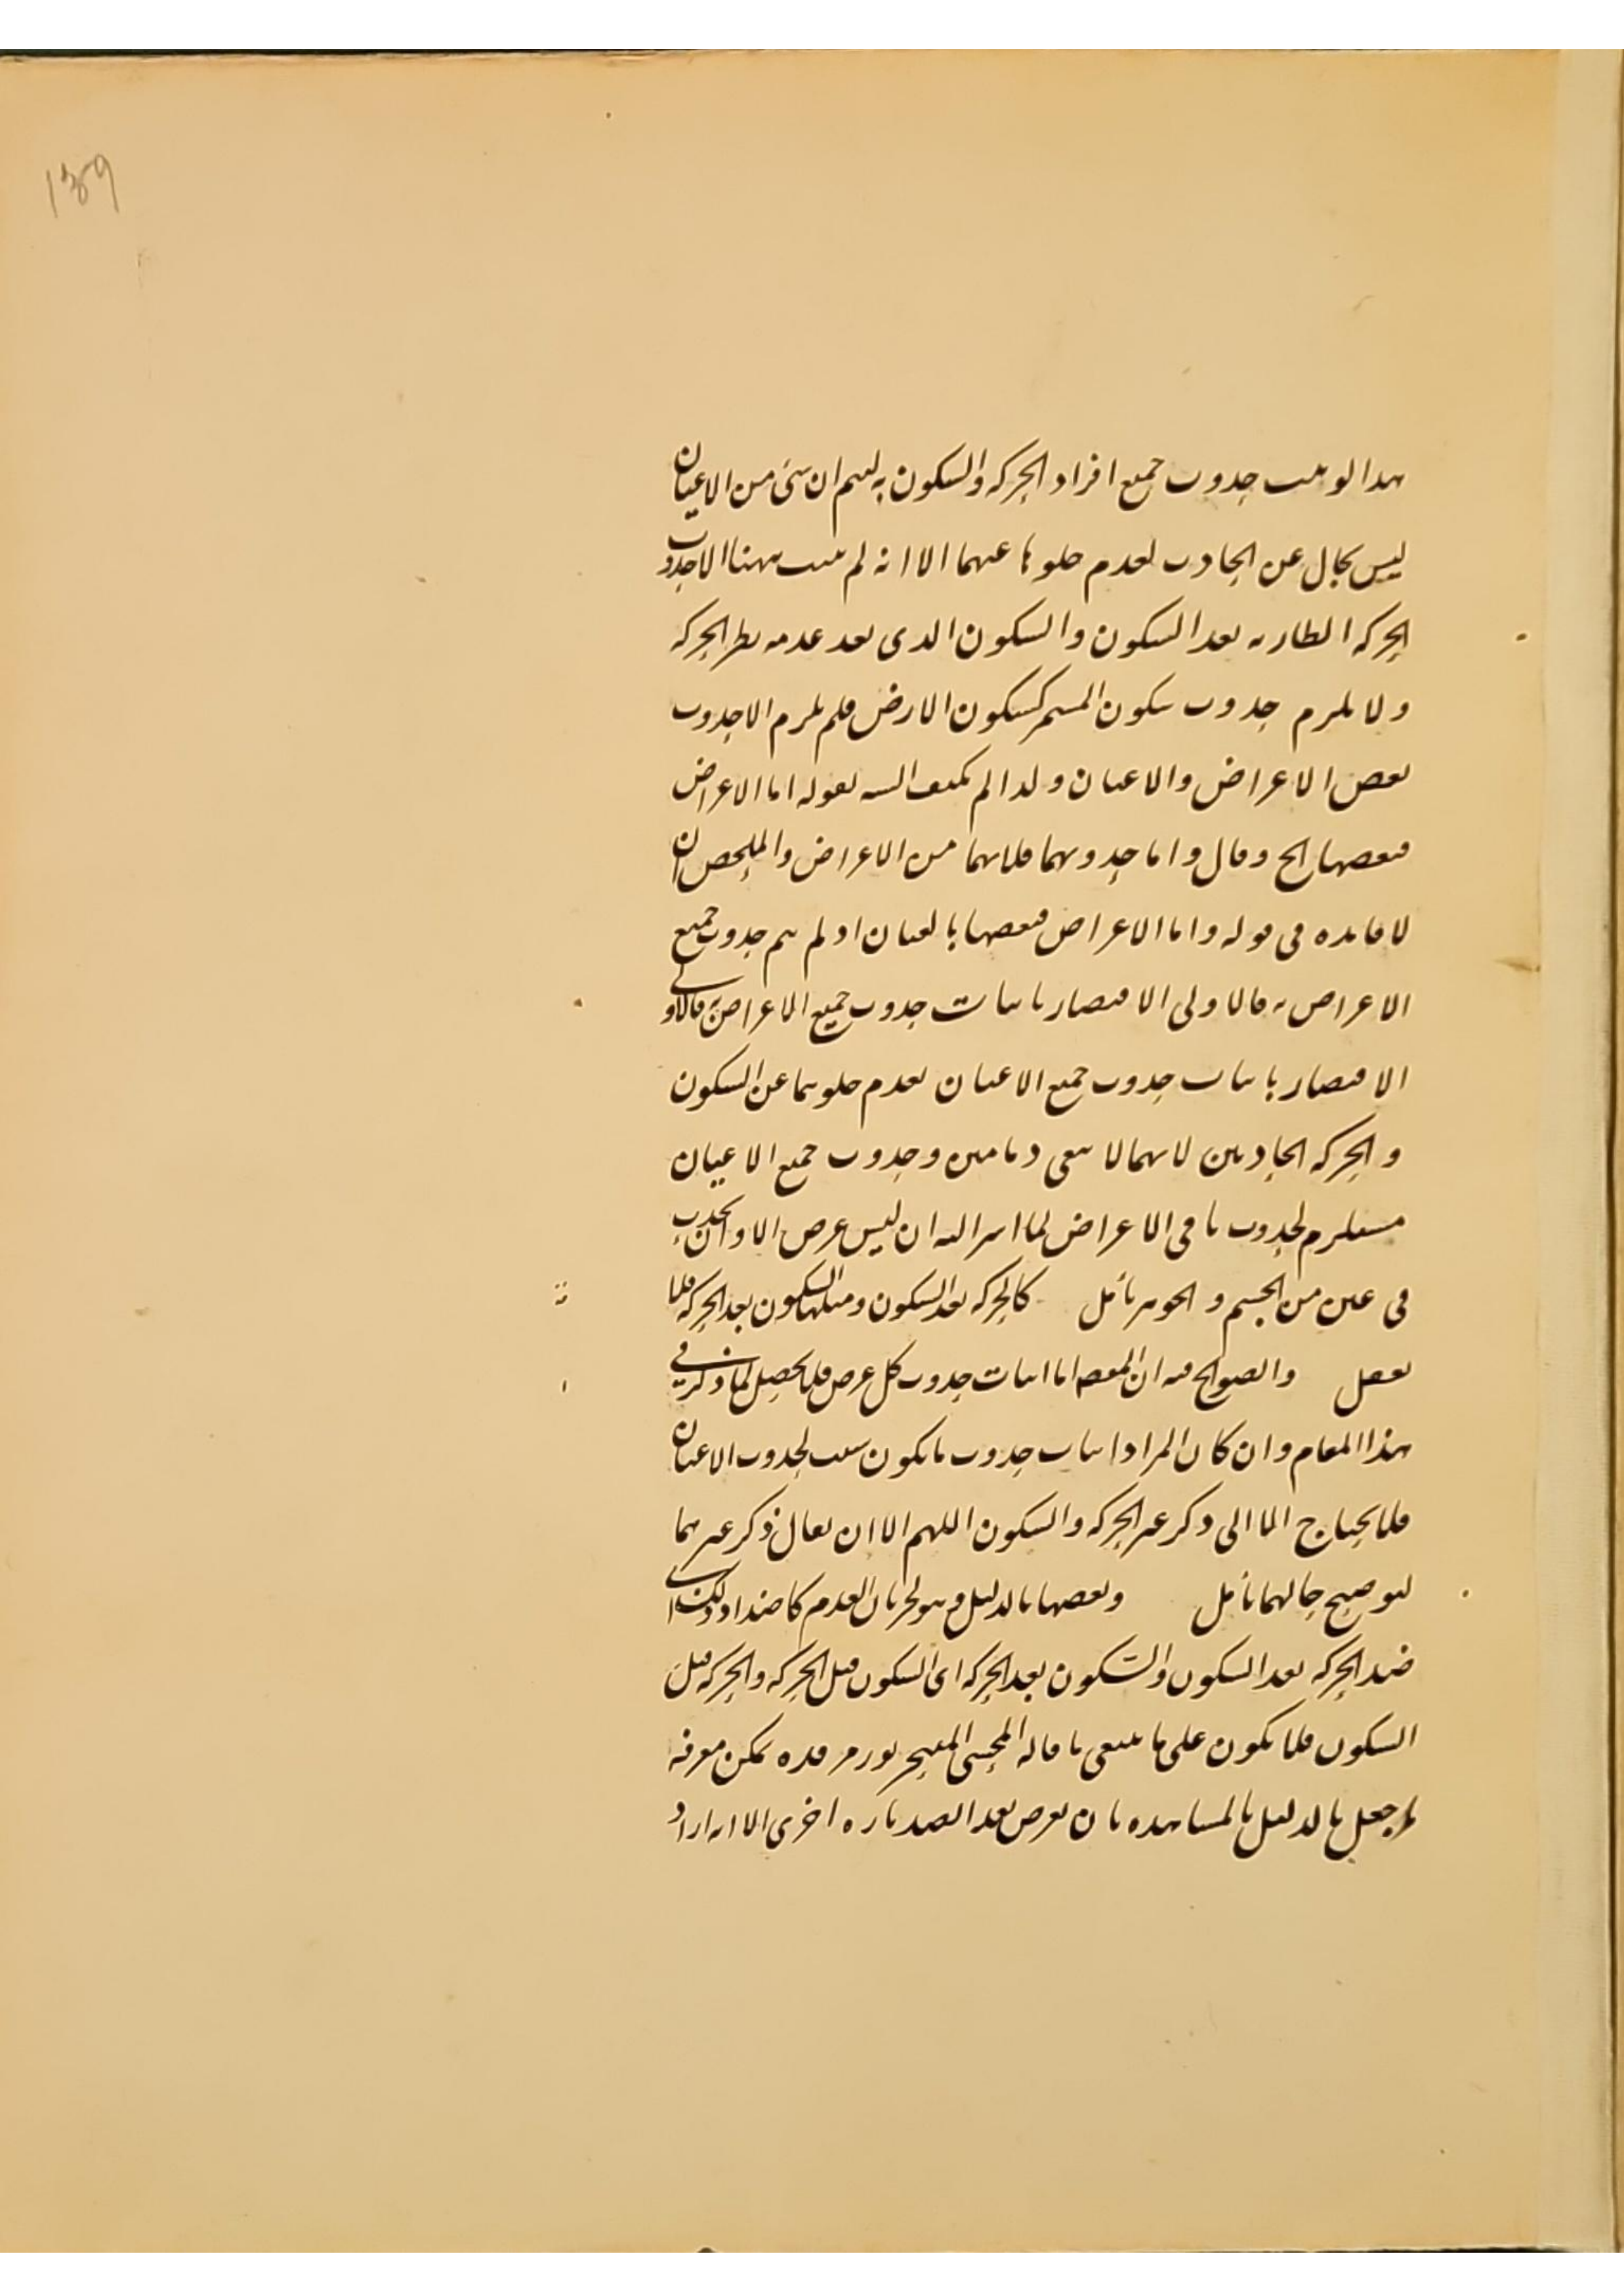 ١٣٩
هذا لو ثبت حدوث جميع افراد الحركة والسكون به ليتم ان شئ من الاعيان
ليس بخال عن الحادث لعدم خلوها عنهما الا انه لم يثبت ههنا الا حدوث
الحركة الطارية بعد السكون والسكون الذى بعد عدمه بطر الحركة
ولا يلزم حدوث سكون المستمر كسكون الارض فلم يلزم الا حدوث
بعض الاعراض والاعيان ولذا لم يكتف اليه بقوله اما الاعراض
فبعضها الخ وقال واما حدوثهما فلانهما من الاعراض والملخص ان
لا فائدة فى قوله واما الاعراض فبعضها بالعيان اذ لم يتم حدوث جميع
الاعراض به فالاولى الاقتصار باثبات حدوث جميع الاعراض فالاولى
الاقتصار باثبات حدوث جميع الاعيان لعدم خلوهما عن السكون
والحركة الحادثين لانهما لا يبقى دمامين وحدوث جميع الاعيان
مستلزم لحدوث باقى الاعراض لما اشر اليه ان ليس عرض الا وان يحدث
فى عين من الجسم والجوهر تأمل كالحركة بعد السكون ومثلها السكون بعد الحركة فلا
تغفل والصواب فيه ان المقصد اما اثبات حدوث كل عرض فلا يحصل لما ذكر فى
هذا المقام وان كان المراد اثبات حدوث ما يكون سبب لحدوث الاعيان
فلا يحتاج الا الى ذكر غير الحركة والسكون اللهم الا ان يقال ذكر غيرهما
لتوضيح حالهما تأمل وبعضها بالدليل وهو لحريان العدم كاضداد ذلك اى
ضد الحركة بعد السكون والسكون بعد الحركة اى السكون قبل الحركة والحركة قبل
السكون فلا يكون على ما ينبغى ما قاله المحشى المليح نور مرقده يمكن معرفة
ما جعل بالدليل بالمشاهدة بان يعرض بعد الضد تارة اخرى الا انه اراد